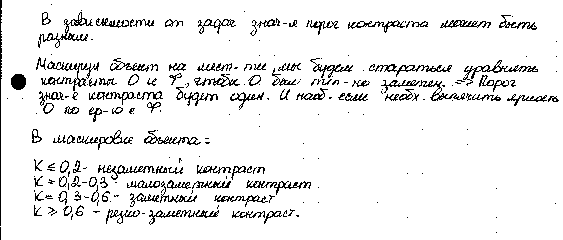 В зависимости от задач знач-я порог контраста может быть
разным.
Маскируя объект на мест-ти, мы будем стараться уравнять
контрасты О и Ф, чтобы О был заметен. => Порог
знач-е контраста будет один. И наоб. если необх. яркость
О по ср-ю с Ф.
В маскировке объекта:
K ≤ 0,2 - незаметный контраст
K = 0,2-0,3 - малозаметный контраст
K = 0,3-0,6 - заметный контраст
K ≥ 0,6 - резко-заметный контраст.